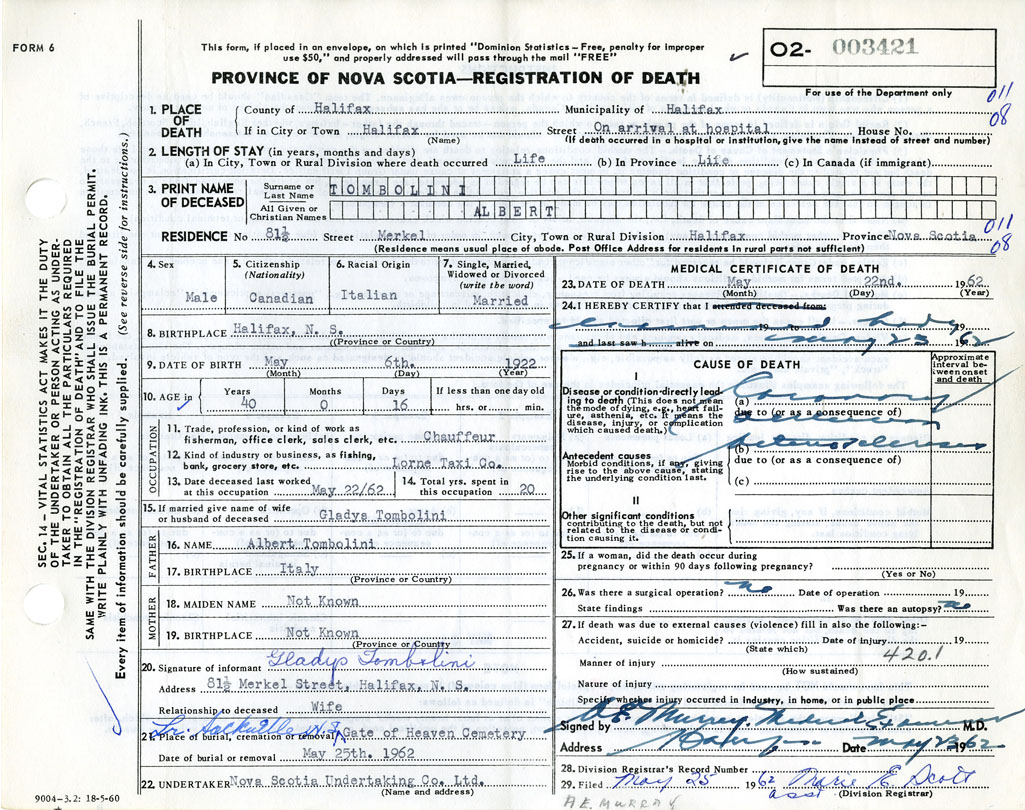 FORM 6
This form, if placed in an envelope, on which is printed "Dominion Statistics - Free, penalty for improper
use $50," and properly addressed will pass through the mail "FREE"
PROVINCE OF NOVA SCOTIA—REGISTRATION OF DEATH
O2- 003421
For use of the Department only
011
08
SEC. 14 — VITAL STATISTICS ACT MAKES IT THE DUTY
OF THE UNDERTAKER OR PERSON ACTING AS UNDER-
TAKER TO OBTAIN ALL THE PARTICULARS REQUIRED
IN THE "REGISTRATION OF DEATH" AND TO FILE THE
SAME WITH THE DIVISION REGISTRAR WHO SHALL ISSUE THE BURIAL PERMIT.
WRITE PLAINLY WITH UNFADING INK. THIS IS A PERMANENT RECORD.
Every item of information should be carefully supplied. (See reverse side for instructions.)
1. PLACE OF DEATH
County of Halifax Municipality of Halifax
If in City or Town Halifax Street On arrival at hospital House No.
(Name) (If death occurred in a hospital or institution, give the name instead of street and number)
2. LENGTH OF STAY (in years, months and days)
(a) In City, Town or Rural Division where death occurred Life (b) In Province Life (c) In Canada (if immigrant)
3. PRINT NAME OF DECEASED
Surname or Last Name TOMBOLINI
All Given or Christian Names ALBERT
RESIDENCE No 81½ Street Merkel City, Town or Rural Division Halifax Province Nova Scotia
(Residence means usual place of abode. Post Office Address for residents in rural parts not sufficient)
011
08
4. Sex
Male
5. Citizenship (Nationality)
Canadian
6. Racial Origin
Italian
7. Single, Married, Widowed or Divorced (write the word)
Married
8. BIRTHPLACE Halifax, N. S.
(Province or Country)
9. DATE OF BIRTH May 6th. 1922
(Month) (Day) (Year)
10. AGE in Years Months Days If less than one day old
40 0 16 hrs. or min.
OCCUPATION
11. Trade, profession, or kind of work as
fisherman, office clerk, sales clerk, etc. Chauffeur
12. Kind of industry or business, as fishing,
bank, grocery store, etc. Lorne Taxi Co.
13. Date deceased last worked
at this occupation May 22/62
14. Total yrs. spent in
this occupation 20
15. If married give name of wife
or husband of deceased Gladys Tombolini
FATHER
16. NAME Albert Tombolini
17. BIRTHPLACE Italy
(Province or Country)
MOTHER
18. MAIDEN NAME Not Known
19. BIRTHPLACE Not Known
(Province or Country)
20. Signature of informant Gladys Tombolini
Address 81½ Merkel Street, Halifax, N. S.
Relationship to deceased Wife
Lr. Sackville N.S.
21. Place of burial, cremation or removal Gate of Heaven Cemetery
Date of burial or removal May 25th. 1962
22. UNDERTAKER Nova Scotia Undertaking Co. Ltd.
(Name and address)
9004-3.2: 18-5-60
MEDICAL CERTIFICATE OF DEATH
23. DATE OF DEATH May 22nd. 1962
(Month) (Day) (Year)
24. I HEREBY CERTIFY that I attended deceased from:
19 to body 19
and last saw h alive on May 23 1962
CAUSE OF DEATH
Approximate interval between onset and death
I
Disease or condition directly lead-
ing to death (This does not mean
the mode of dying, e.g., heart fail-
ure, asthenia, etc. It means the
disease, injury, or complication
which caused death.)
(a) Coronary
due to (or as a consequence of)
Antecedent causes
Morbid conditions, if any, giving
rise to the above cause, stating
the underlying condition last.
(b) Arteriosclerosis
due to (or as a consequence of)
(c)
II
Other significant conditions
contributing to the death, but not
related to the disease or condi-
tion causing it.
25. If a woman, did the death occur during
pregnancy or within 90 days following pregnancy?
(Yes or No)
26. Was there a surgical operation? no Date of operation 19
State findings Was there an autopsy? no
27. If death was due to external causes (violence) fill in also the following:-
Accident, suicide or homicide? Date of injury 19
(State which)
420.1
Manner of injury
(How sustained)
Nature of injury
Specify whether injury occurred in industry, in home, or in public place
Signed by A. E. Murray Medical Examiner M.D.
Address Date May 23 1962
28. Division Registrar's Record Number
29. Filed May 25 1962 Marie E. Scott
asst (Division Registrar)
A E. MURRAY